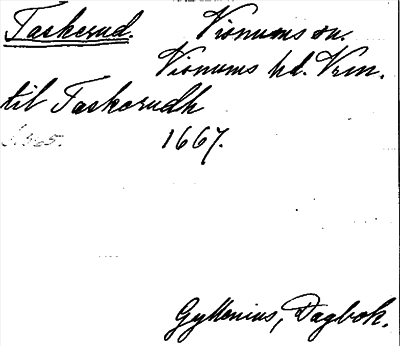 Taskerud. Visnums sn.
Visnums hd. Vrm.
til Taskerudh
1667.
Gyllenius, Dagbok.